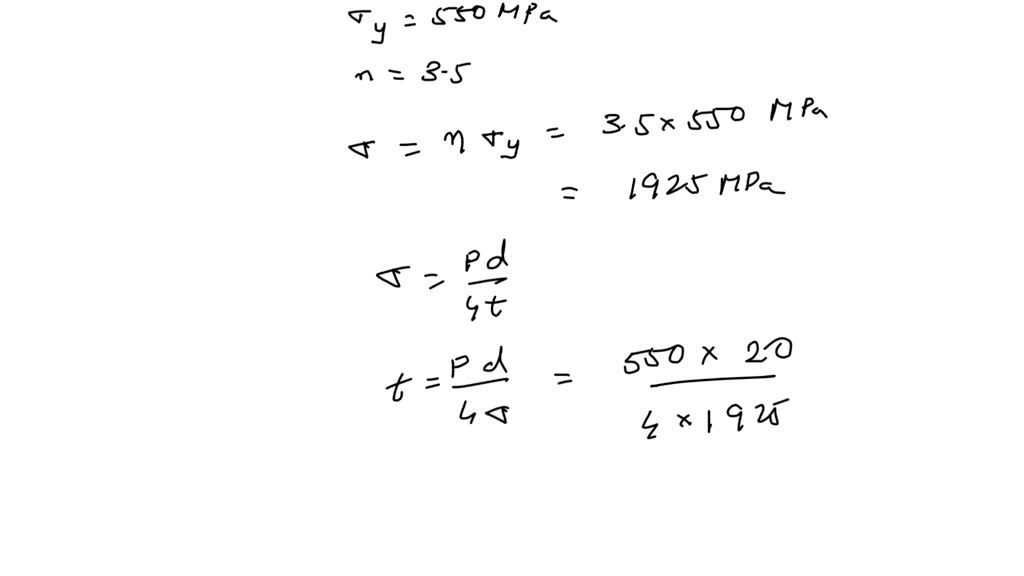 σy = 550 MPa
n = 3.5
σ = η σy = 3.5 × 550 MPa
= 1925 MPa
σ = Pd / 4t
t = Pd / 4σ = 550 × 20 / 4 × 1925